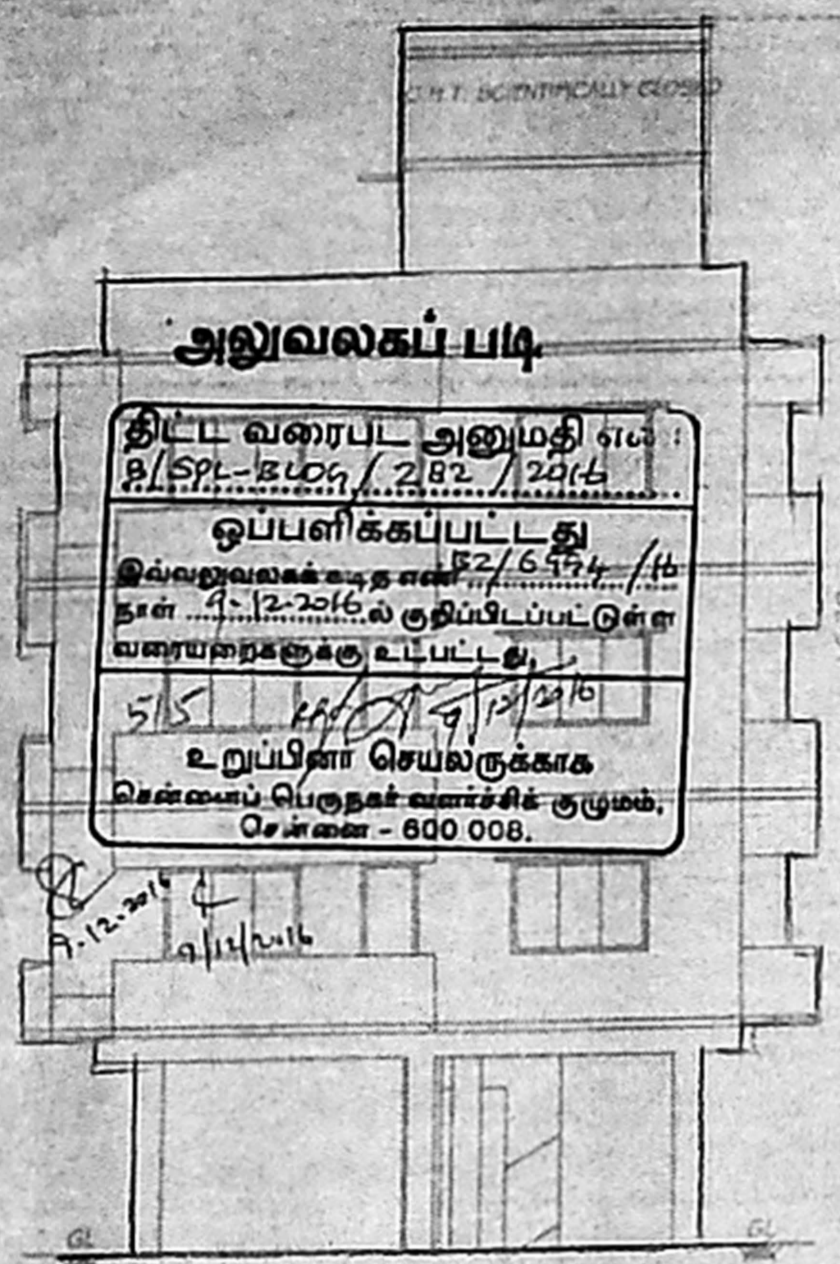 O.H.T. SCIENTIFICALLY CLOSED
அலுவலகப் படி
திட்ட வரைபட அனுமதி எண் :
B/SPL-BLDG/282/2016
ஒப்பளிக்கப்பட்டது
இவ்வலுவலகக் கடித எண் /16
நாள் 9-12-2016 ல் குறிப்பிடப்பட்டுள்ள
வரையறைகளுக்கு உட்பட்டது.
5/5 9/12/2016
உறுப்பினர் செயலருக்காக
சென்னைப் பெருநகர் வளர்ச்சிக் குழுமம்,
சென்னை - 600 008.
9.12.2016
9/12/2016
GL GL